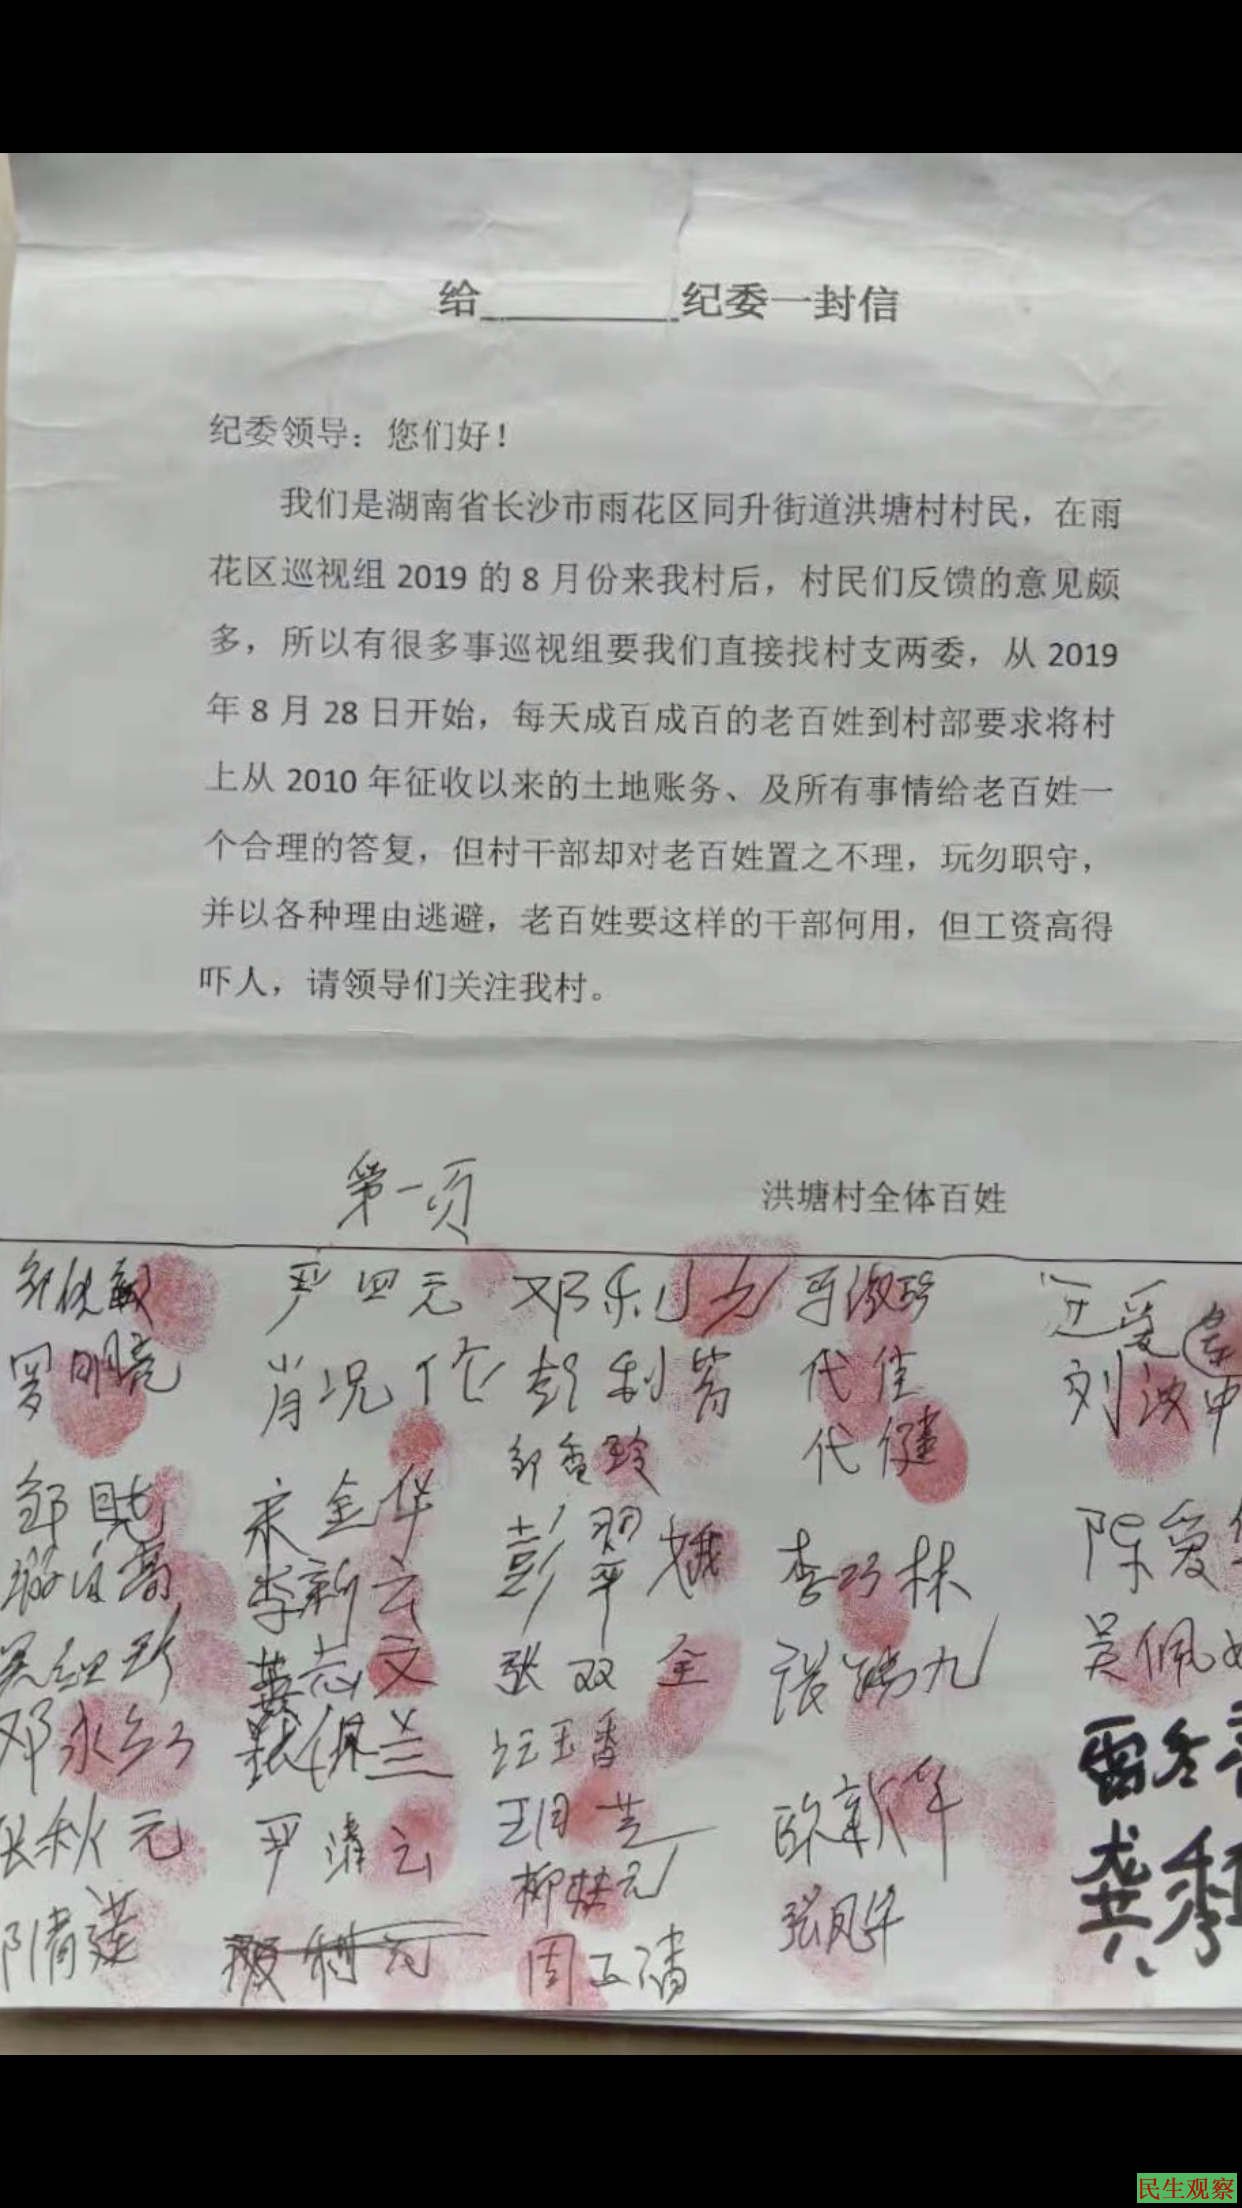 给________纪委一封信
纪委领导：您们好！
我们是湖南省长沙市雨花区同升街道洪塘村村民，在雨
花区巡视组 2019 的 8 月份来我村后，村民们反馈的意见颇
多，所以有很多事巡视组要我们直接找村支两委，从 2019
年 8 月 28 日开始，每天成百成百的老百姓到村部要求将村
上从 2010 年征收以来的土地账务、及所有事情给老百姓一
个合理的答复，但村干部却对老百姓置之不理，玩勿职守，
并以各种理由逃避，老百姓要这样的干部何用，但工资高得
吓人，请领导们关注我村。
第一页
洪塘村全体百姓
严四元
马淑珍
罗明亮
代佳
刘波
邹香玲
代健
宋金华
彭翠娥
李巧林
陈爱
李新云
张双全
吴佩
邓永
汪玉香
欧新华
雷冬
秋元
严清云
张凤华
龚
周
民生观察